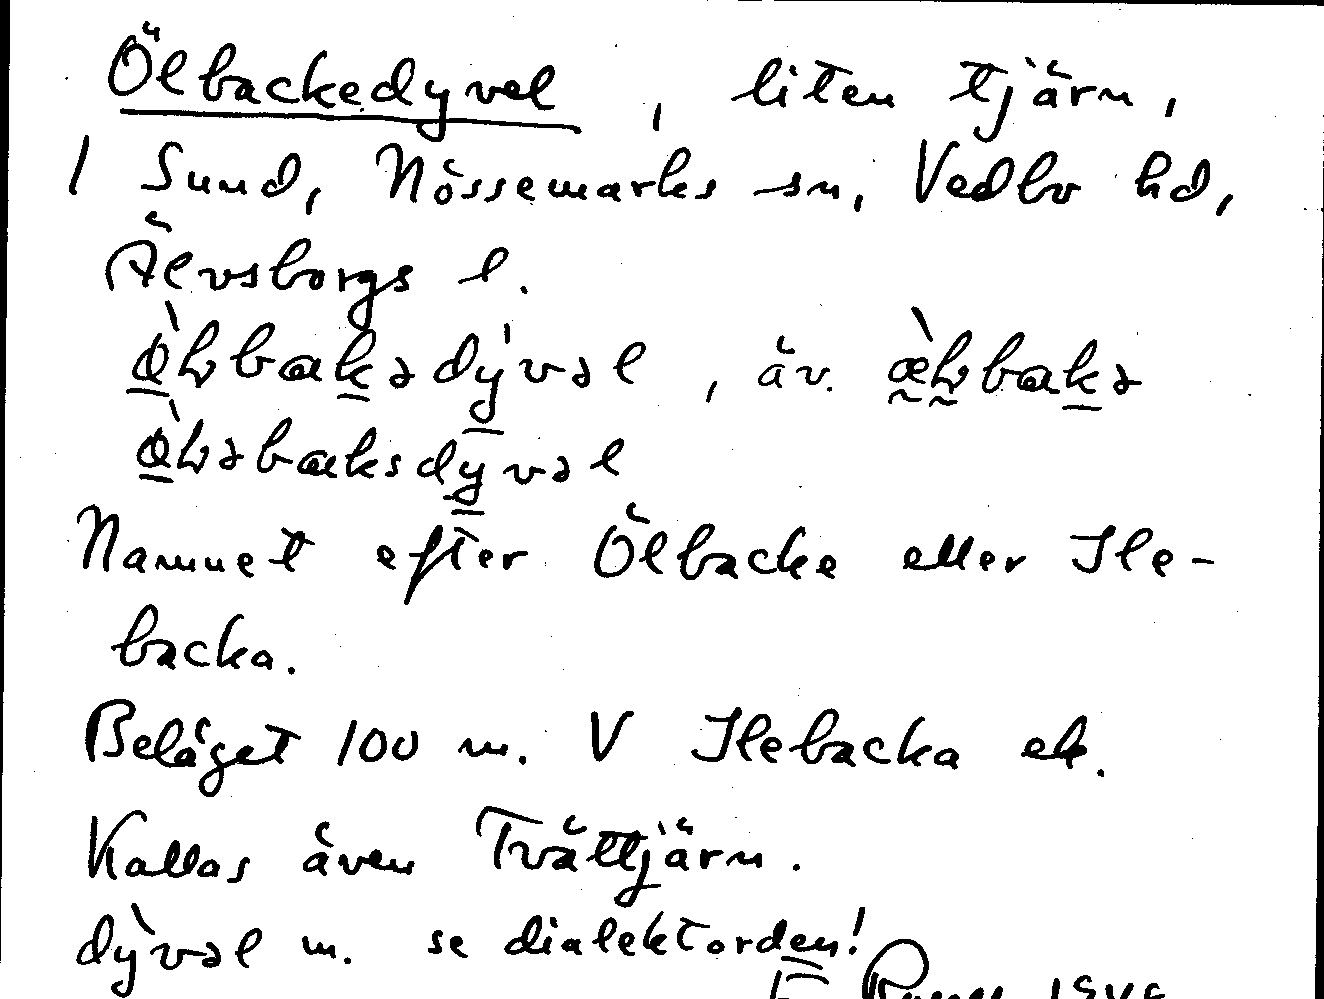 Ölbackedyvel, liten tjärn,
1 Sund, Nössemarks sn, Vedbo hd,
Älvsborgs l.
ø̱̀ɽbaḵədý̱vəl, äv. æ̰̀ɽ̰baḵə
ø̱̀ɽəbaksdy̱vəl
Namnet efter Ölbacke eller Ile-
backa.
Beläget 100 m. V Ilebacka ek.
Kallas även Tvättjärn.
dỳvəl m. se dialektorden!